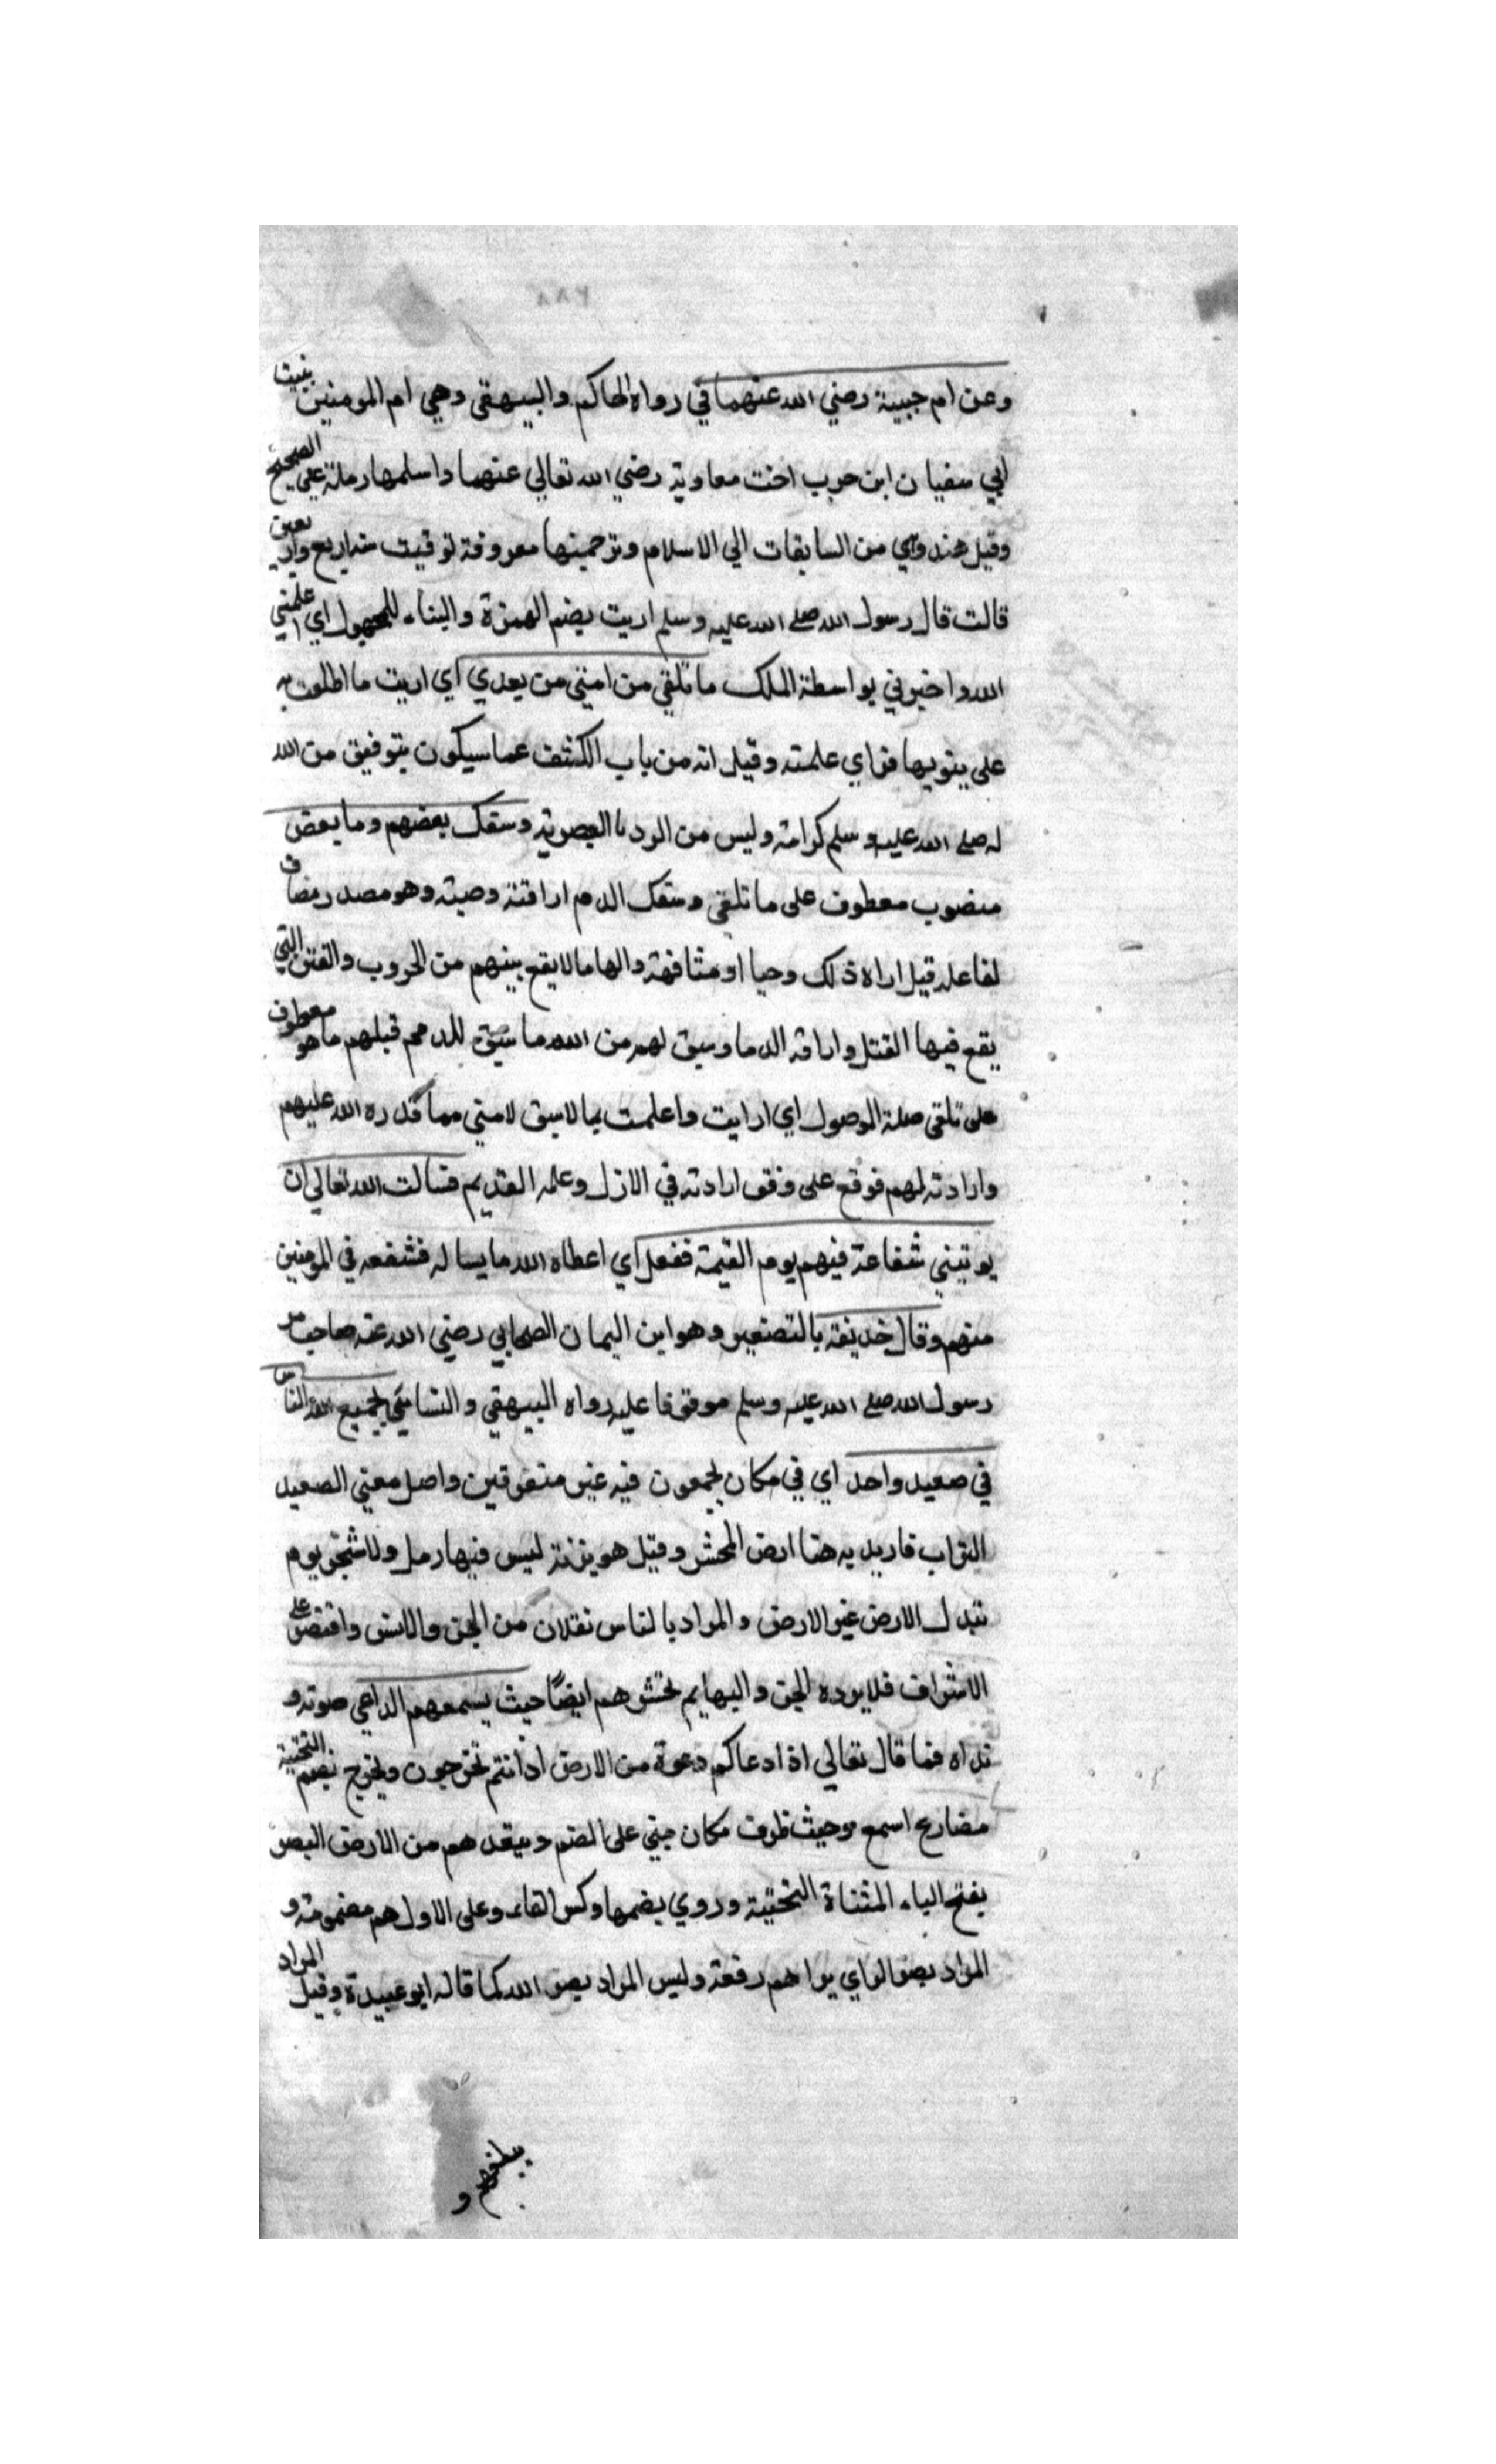 ٢٨٨
وعن ام حبيبة رضي الله عنهما في رواه الحاكم والبيهقي وهي ام المومنين بنت
ابي سفيان ابن حرب اخت معاوية رضي الله تعالي عنهما واسلمها رملة علي الصحيح
وقيل هند وهي من السابقات الي الاسلام وترجمتها معروفة توفيت سنة اربع واربعين
قالت قال رسول الله صلي الله عليه وسلم اريت بضم الهمزة والبناء للمجهول اي علمني
الله واخبرني بواسطة الملك ما تلقي من امتي من بعدي اي اريت ما اطلعت به
علي فاي علمته وقيل انه من باب الكشف عما سيكون بتوفيق من الله
له صلي الله عليه وسلم كرامة وليس من الرديا البصرية وسفك بعضهم وما بعض
منصوب معطوف علي ما تلقي وسفك الدم اراقته وصبه وهو مصدر مضاف
لفاعله قيل اراه ذلك وحيا او مشافهة والهاما لا يقع بينهم من الحروب والفتن التي
يقع فيها القتل واراقة الدما وسبق لهم من الله ما سبق للدمم قبلهم ما هو معطوف
علي تلقي صلة الموصول اي ارايت واعلمت بما لاسبق لامتي مما قدره الله عليهم
وارادته لهم فوقع علي وفق ارادته في الازل وعلمه القديم فسالت الله تعالي ان
يوتيني شفاعة فيهم يوم القيمة ففعل اي اعطاه الله ما يساله فشفعه في المومنين
منهم وقال حذيفة بالتصغير وهو ابن اليمان الصحابي رضي الله عنه صاحب سر
رسول الله صلي الله عليه وسلم موقوفا عليه رواه البيهقي والنسائي يجمع الله الناس
في صعيد واحد اي في مكان يجمعون فيه غير متفرقين واصل معني الصعيد
التراب فاريد به هنا ارض المحشر وقيل هو ليس فيها رمل ولا شجر يوم
تبدل الارض غير الارض والمراد بالناس ثقلان من الجن والانس واقتصر علي
الاشراف فلا يرده الجن والبهايم تحشر هم ايضًا حيث يسمعهم الداعي صوته و
نداه فما قال تعالي اذا دعاكم دعوة من الارض اذا انتم تخرجون ويخرج بضم التحتية
مضارع اسمع وحيث ظرف مكان مبني علي الضم وينفدهم من الارض البصر
بفتح الياء المثناة التحتية وروي بضمها وكسر الفاء وعلي الاول هم مضمومة و
المراد بصر الراي يراهم دفعة وليس المراد بصر الله كما قاله ابو عبيدة وقيل المراد